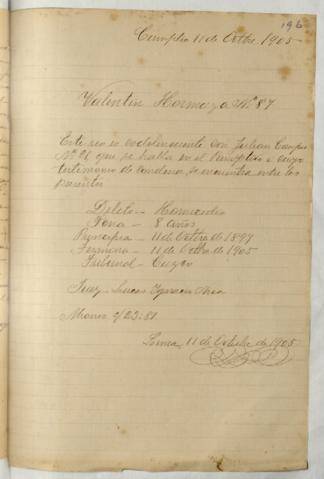 196
Cumplio 11 de Octre. 1905
Valentin Hormaza Nº 87
Este reo es codelincuente con Julian Campo
Nº 26 que se halla en el
testimonio de condena se encuentra entre los
Delito — Homicidio
Pena — 8 años
Principia — 11 de Octbre de 1897
Termina — 11 de Octbre de 1905
Tribunal — Cuzco
Juez — Lucas
Lima, 11 de Octubre de 1905